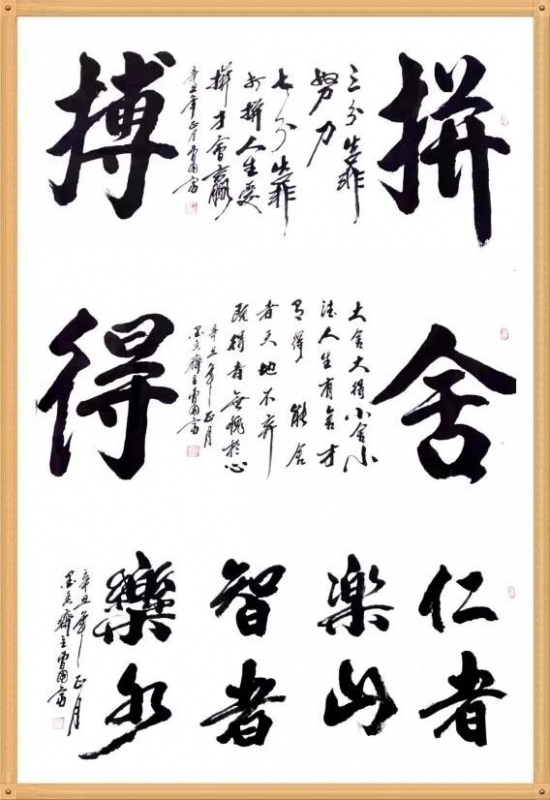 拼
三分靠
努力
七分靠
打拼人生爱
拼才會贏
辛丑年正月
搏
舍
大舍大得小舍小
得人生有舍才
有得能舍
者天地不弃
既得者無愧於心
辛丑年正月
墨香齋主
得
仁者
楽山
智者
樂水
辛丑年正月
墨香齋主